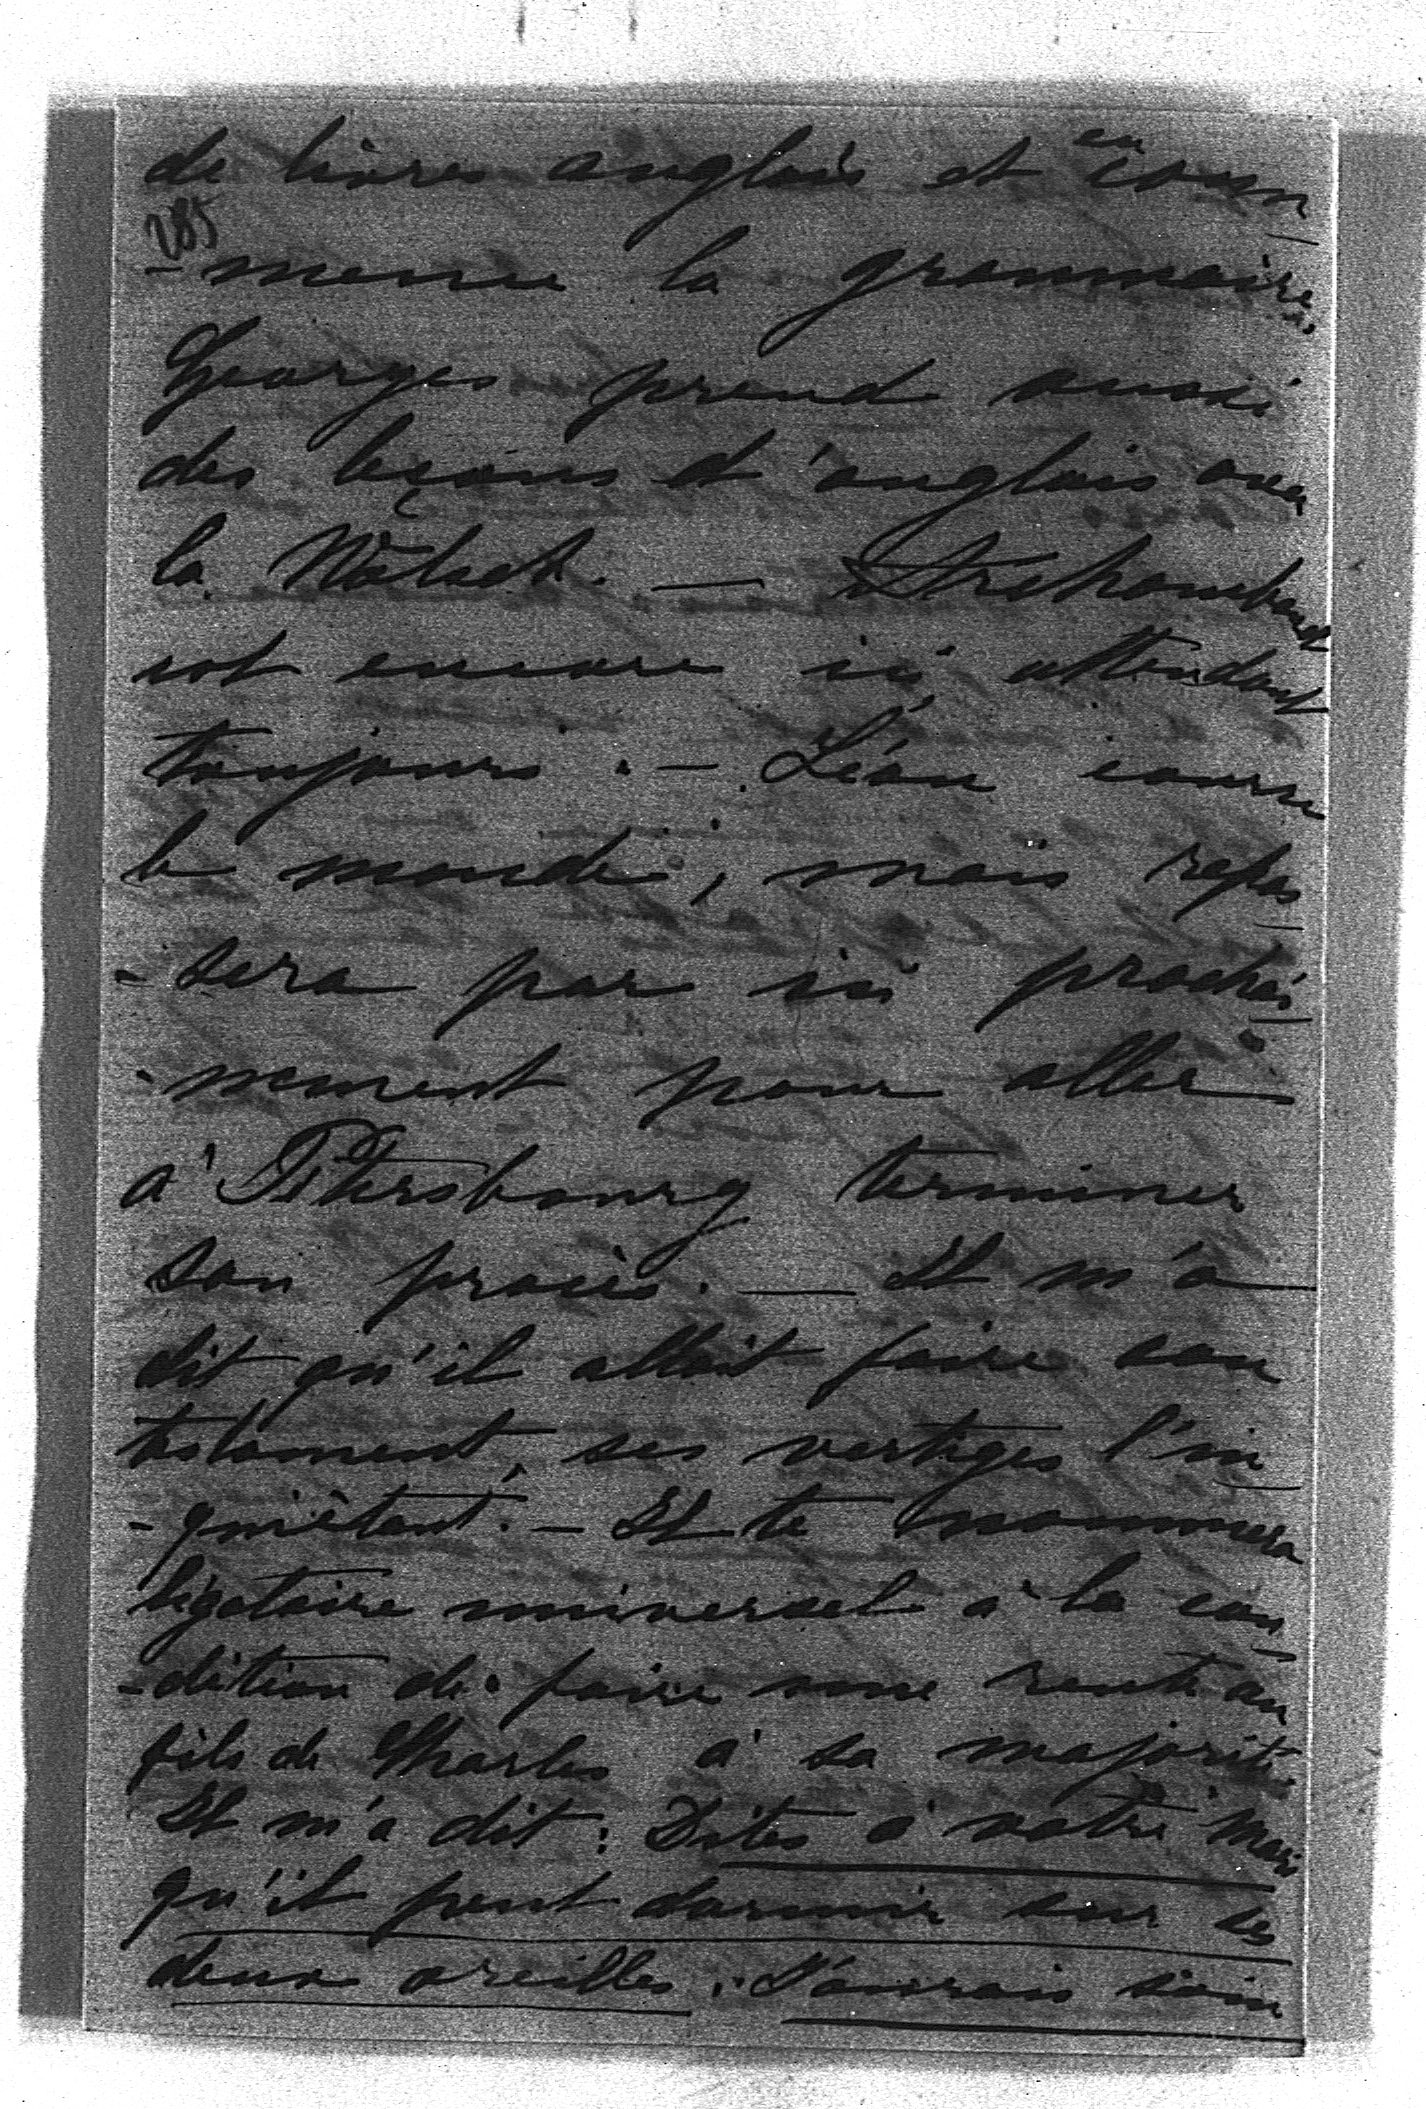 de livres anglais et en com
285
-mence la grammaire.
Georges prend aussi
des leçons d'anglais avec
la
est encore ici, attendant
toujours. — Léon courre
le monde, mais repas
-sera par ici prochai
-nement pour aller
à Pétersbourg terminer
son procès. — Il m'a
dit qu'il allait faire son
testament, ses vertiges l'in
-quiètent. — Il te nommera
légataire universel à la con
-dition de faire une rente au
fils de Charles à sa majorité.
Il m'a dit : Dites à votre mari
qu'il peut dormir sur ses
deux oreilles. J'aurais soin